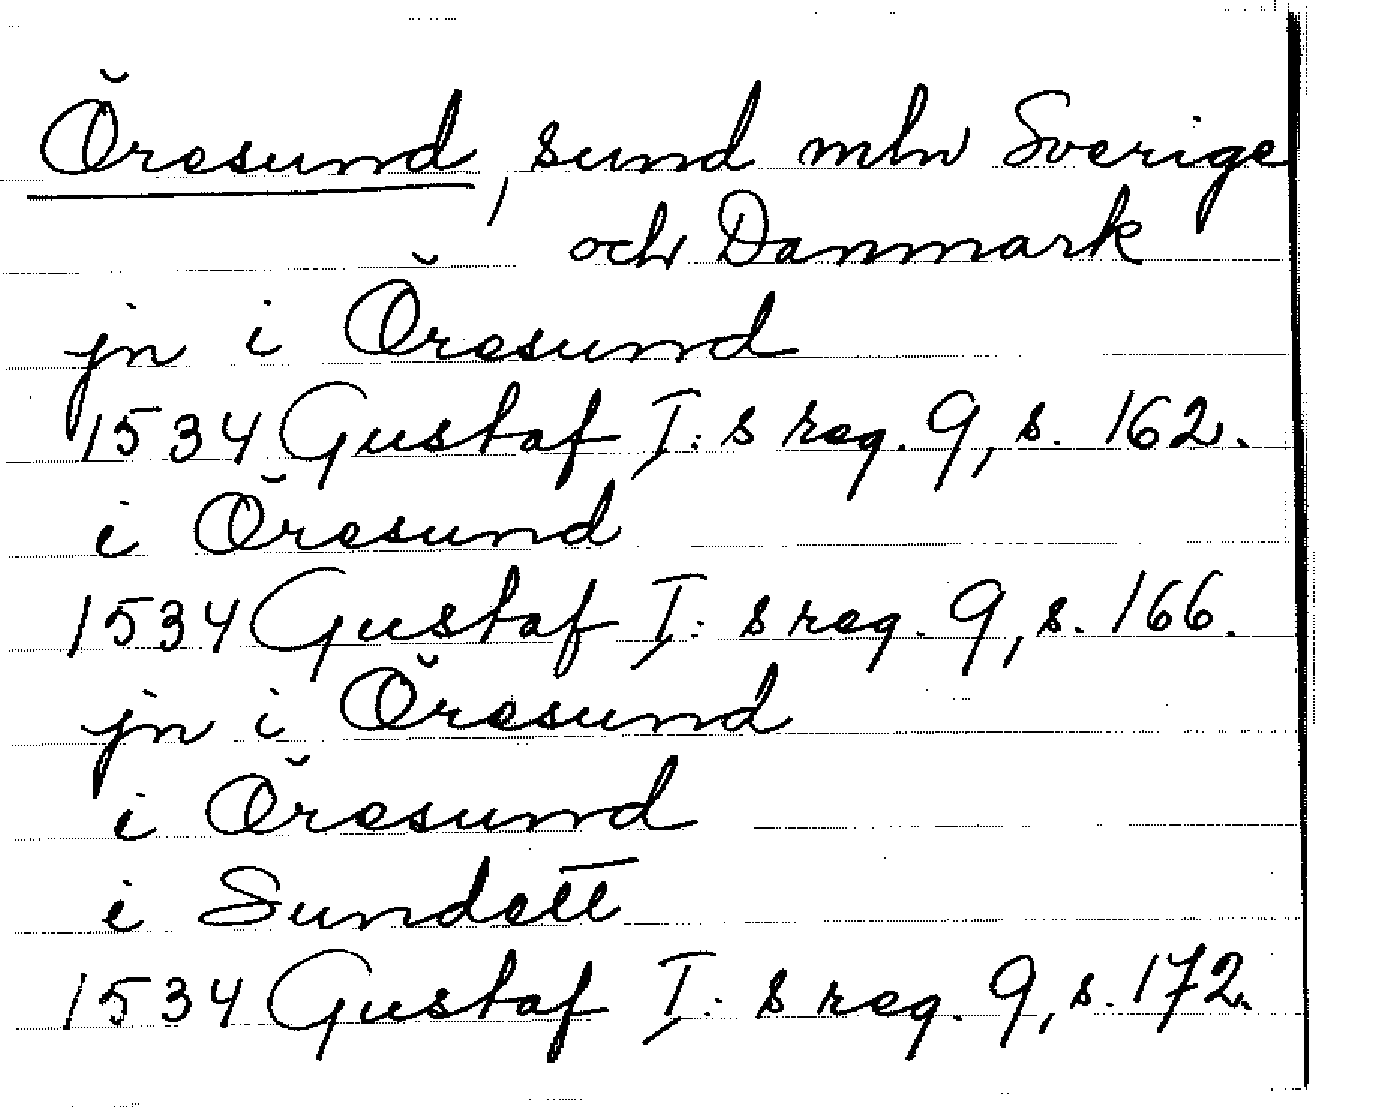 Öresund, sund mln Sverige
och Danmark
jn i Öresund
1534 Gustaf I:s reg. 9, s. 162.
i Öresund
1534 Gustaf I:s reg. 9, s. 166.
jn i Öresund
i Öresund
i Sundett
1534 Gustaf I:s reg. 9, s. 172.